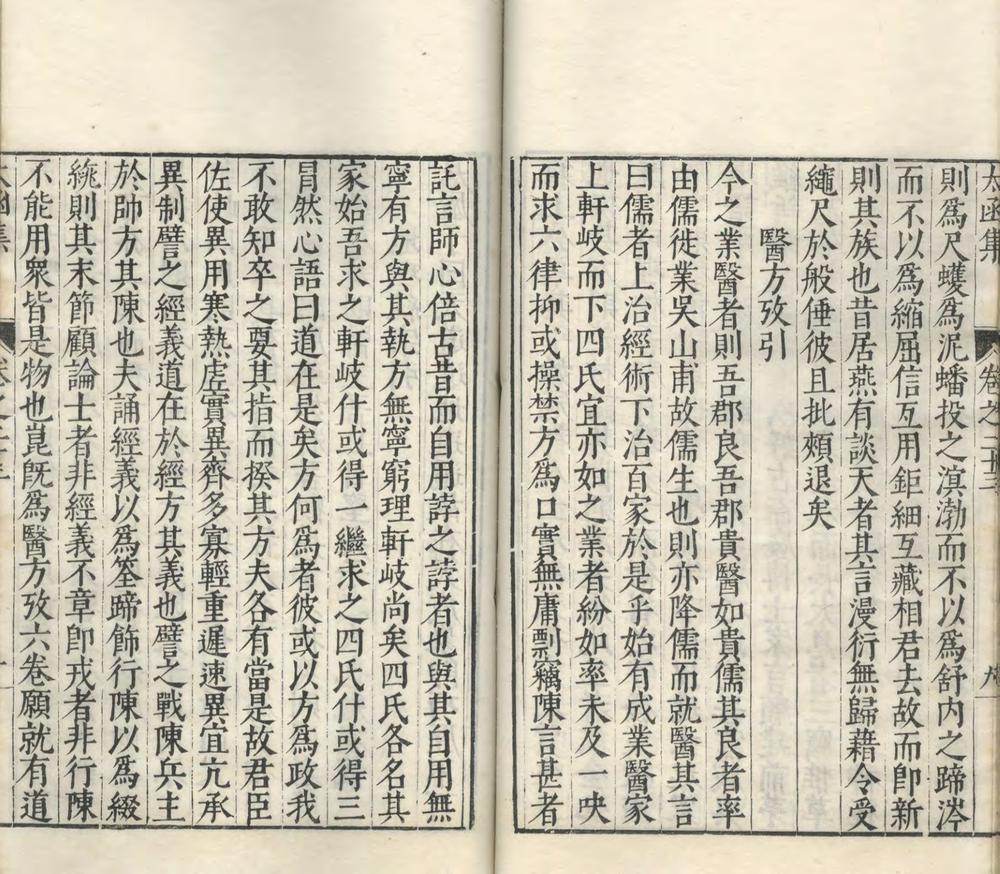 太函集 卷之二十三 九
則爲尺蠖爲泥蟠投之溟渤而不以爲舒内之蹄涔
而不以爲縮屈信互用鉅細互藏相君去故而卽新
則其族也昔居燕有談天者其言漫衍無歸藉令受
繩尺於般倕彼且批頰退矣
醫方攷引
今之業醫者則吾郡良吾郡貴醫如貴儒其良者率
由儒徙業吳山甫故儒生也則亦降儒而就醫其言
曰儒者上治經術下治百家於是乎始有成業醫家
上軒岐而下四氏宜亦如之業者紛如率未及一吷
而求六律抑或操禁方爲口實無庸剽竊陳言甚者
託言師心倍古昔而自用誖之誖者也與其自用無
寧有方與其執方無寧窮理軒岐尚矣四氏各名其
家始吾求之軒岐什或得一繼求之四氏什或得三
冐然心語曰道在是矣方何爲者彼或以方爲政我
不敢知卒之要其指而揆其方夫各有當是故君臣
佐使異用寒熱虛實異齊多寡輕重遲速異宜亢承
異制譬之經義道在於經方其義也譬之戰陳兵主
於帥方其陳也夫誦經義以爲筌蹄飾行陳以爲綴
繞則其末節顧論士者非經義不章卽戎者非行陳
不能用衆皆是物也崑旣爲醫方攷六卷願就有道